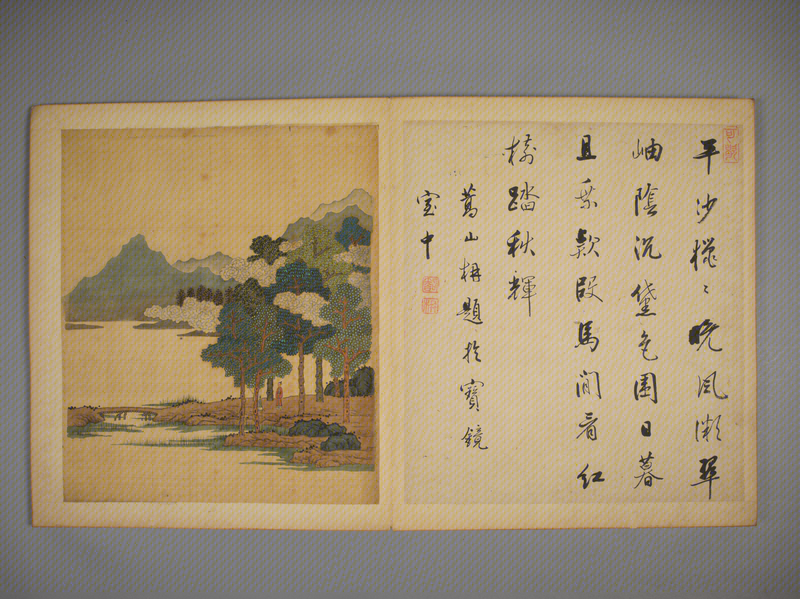 平沙獵〻晚風微翠
岫陰沉黛色圍日暮
且乘款段馬閒看紅
樹踏秋輝
山題於寶鏡
室中